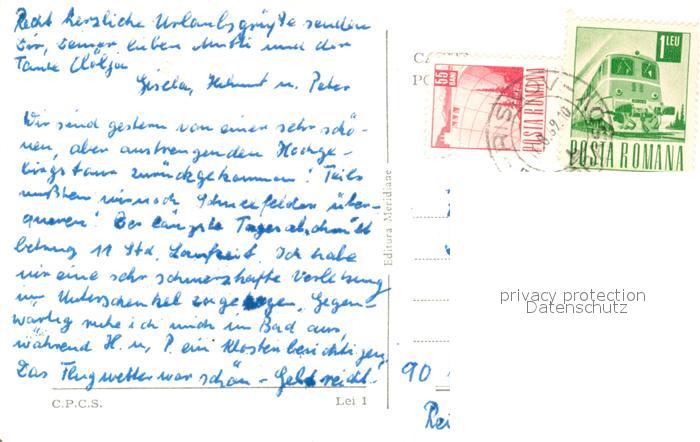 Recht herzliche Urlaubsgrüße senden
Dir, Deiner lieben Mutti und der
Tante Olga
Gisela, Helmut u. Peter
Wir sind gestern von einer sehr schö-
nen, aber anstrengenden Hochge-
birgstour zurückgekommen! Teils
mußten wir noch Schneefelder über-
queren! Der längste Tagesabschnitt
betrug 11 Std. Laufzeit. Ich habe
mir eine sehr schmerzhafte Verletzung
im Unterschenkel zugezogen. Gegen-
wärtig ruhe ich mich im Bad aus,
während H. u. P. ein Kloster besichtigen.
Das Flugwetter war schön - Geld reicht.
C.P.C.S.
Lei 1
Editura Meridiane
55
BANI
POSTA ROMANA
1 LEU
POSTA ROMANA
90
Rei
privacy protection
Datenschutz